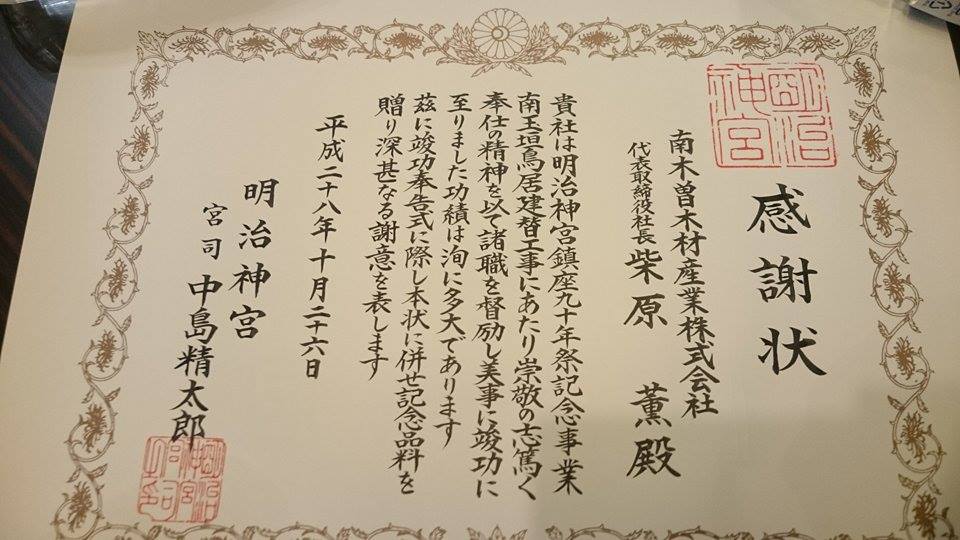 感謝状
南木曽木材産業株式会社
代表取締役社長 柴原 薫 殿
貴社は明治神宮鎮座九十年祭記念事業
南玉垣鳥居建替工事にあたり崇敬の志篤く
奉仕の精神を以て諸職を督励し美事に竣功に
至りました功績は洵に多大であります
茲に竣功奉告式に際し本状に併せ記念品料を
贈り深甚なる謝意を表します
平成二十八年十月二十六日
明治神宮
宮司 中島精太郎
明治神宮
明治神宮宮司之印